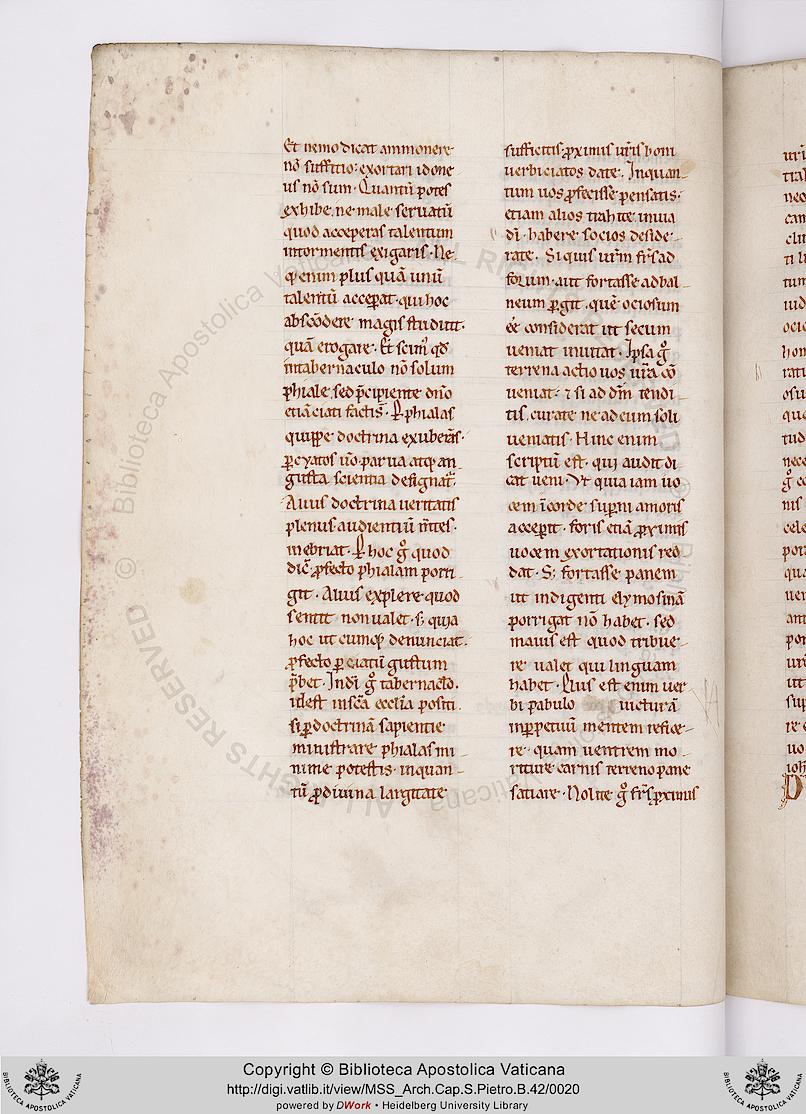 Et nemo dicat ammonere
nō suffitio: exortari idone
us nō sum. Quantū potes
exhibe. ne male servatū
quod acceperas talentum
intormentis exigaris. Ne
q; enim plus quā unū
talentū acceꝑat. qui hoc
abscōdere magis studuit.
quā erogare. Et scim᷒ qđ
intabernaculo nō solum
phiale. sed p̄cipiente dn̄o
etiā ciati factis̄. Ꝑ phialas
quippe doctrina exuberās.
ꝑ cyatos ūo parva atq; an
gusta scientia designat᷒.
Alius doctrina veritatis
plenus audientiū m̄tes.
inebriat. Ꝑ hoc ḡ quod
dic̄. ꝓfecto phialam porri
git. Alius explere quod
sentit non valet. s; quia
hoc ut cumq; denunciat.
ꝓfecto ꝑ ciatū gustum
p̄bet. Indi ḡ tabernac̄lo.
idest insc̄a eccl̄ia positi.
si ꝑ doctrinā sapientie
ministrare phialas mi
nime potestis. inquan
tū ꝓ divina largitate
sufficitis. ꝓximis vr̄is boni
verbi ciatos date. Inquan
tum vos ꝓfecisse pensatis.
etiam alios trahite. invia
dī. habere socios deside
rate. Si quis vr̄m fr̄s ad
forum. aut fortasse ad bal
neum ꝑgit. quē ociosum
ēē considerat ut secum
veniat invitat. Ipsa ḡ
terrena actio vos vr̄a cō
veniat. ⁊ si ad dm̄ tendi
tis. curate ne ad eum soli
veniatis. Hinc enim
scriptū est. qui audit di
cat veni. Vt quia iam vo
cem ī corde suꝑni amoris
acceꝑit. foris etiā ꝓximis
vocem exortationis red
dat. S; fortasse panem
ut indigenti elymosinā
porrigat nō habet. sed
maius est quod tribue
re valet qui linguam
habet. Plus est enim ver
bi pabulo victurā
inꝑpetuū mentem refice
re. quam ventrem mo
riture carnis terreno pane
satiare. Nolite ḡ fr̄s ꝓximis
Copyright © Biblioteca Apostolica Vaticana
http://digi.vatlib.it/view/MSS_Arch.Cap.S.Pietro.B.42/0020
powered by DWork • Heidelberg University Library